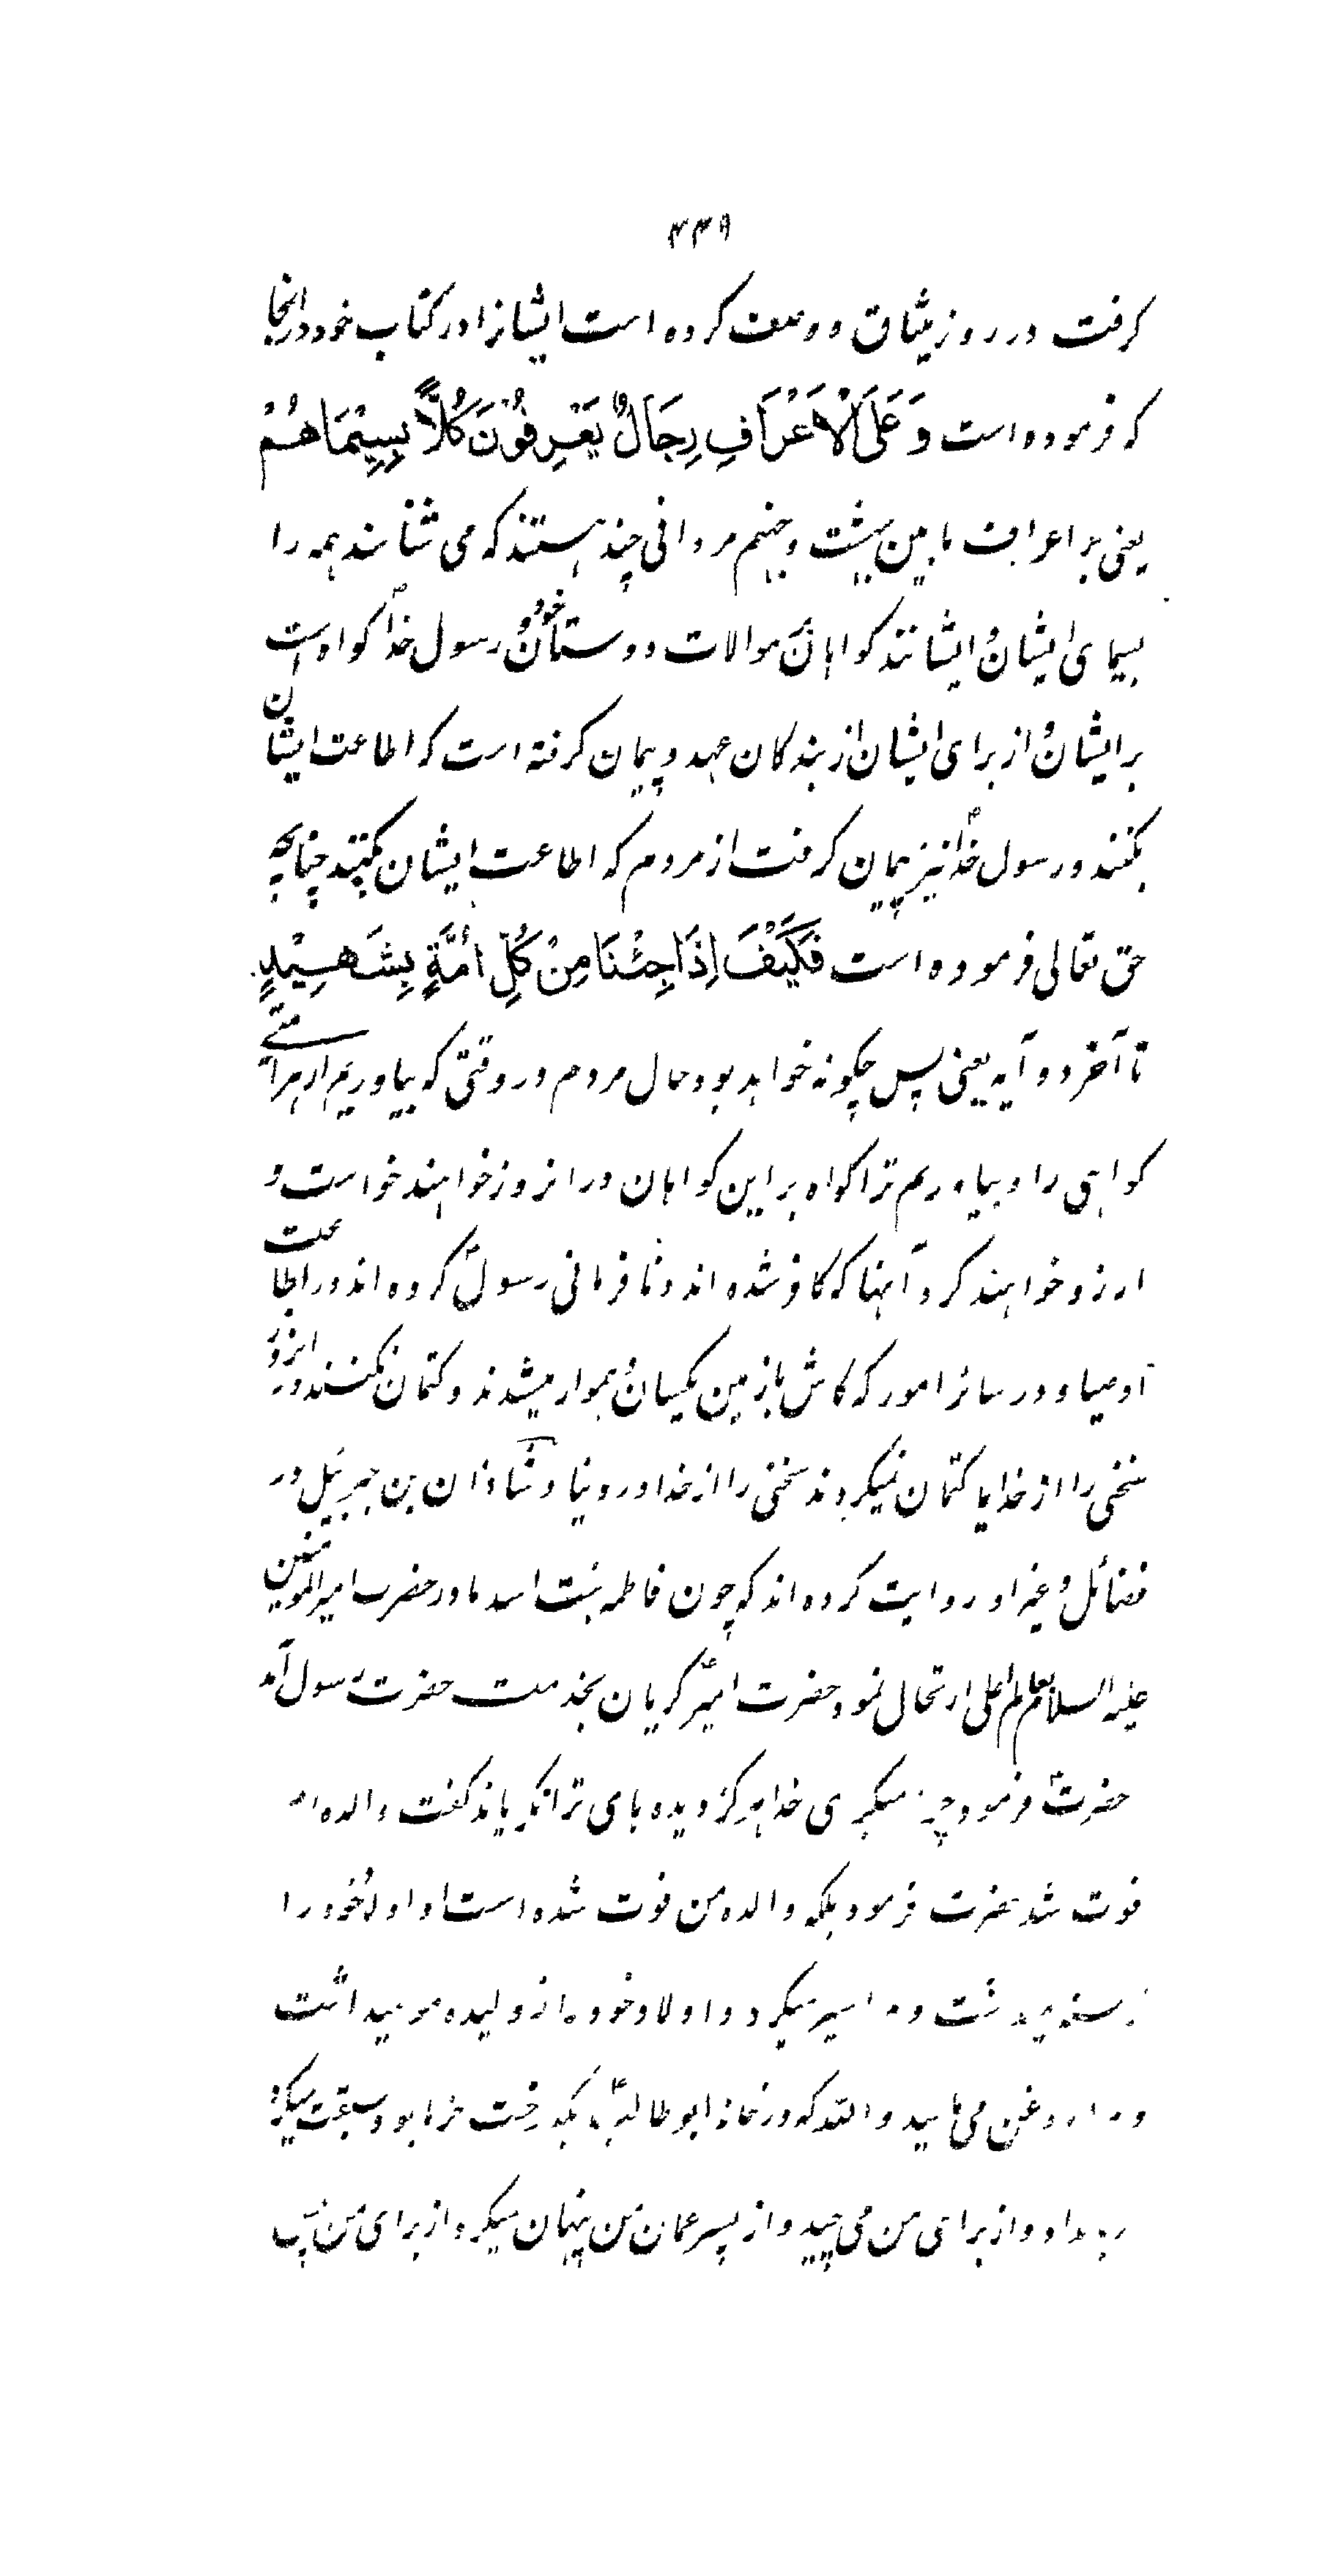 ۴۳۹
کرفت در روز میثاق و وصف کرده است ایشانرا در کتاب خود در انجا
که فرموده است وَعَلَی الْاَعْرَافِ رِجَالٌ یَعْرِفُوْنَ کُلّاً بِسِیْمَاهُمْ
یعنی بر اعراف مابین بهشت و جهنم مردانی چند هستند که می شناسند همه را
بسیمای ایشان و ایشانند کواهان موالات دوستان خود و رسول خدا کواه است
بر ایشان و از برای ایشان از بندکان عهد و پیمان کرفته است که اطاعت ایشان
بکنند و رسول خدا نیز پیمان کرفت از مردم که اطاعت ایشان بکنند چنانچه
حق تعالی فرموده است فَکَیْفَ اِذَا جِئْنَا مِنْ کُلِّ اُمَّةٍ بِشَهِیْدٍ
تا آخر دو آیه یعنی پس چکونه خواهد بود حال مردم در وقتی که بیاوریم از هر امتے
کواهی را و بیاوریم ترا کواه بر این کواهان در انروز خواهند خواست و
ارزو خواهند کرد آنها که کافر شده اند و نافرمانی رسول کرده اند در اطاعت
اوصیا و در سائر امور که کاش با زمین یکسان و هموار میشدند و کتمان نکنند در انروز
سخنی را از خدا یا کتمان نمیکردند سخنی را از خدا در دنیا و شاذان بن جبرئیل در
فضائل و غیر او روایت کرده اند که چون فاطمه بنت اسد مادر حضرت امیرالمومنین
علیه السلام بعالم اعلی ارتحال نمود حضرت امیر کریان بخدمت حضرت رسول آمد
حضرت فرمود چرا میکریی خدا هرکز دیده های ترا نکریاند کفت والده ام
فوت شد حضرت فرمود بلکه والده من فوت شده است او اولاد خود را
کرسنه میداشت و مرا سیر میکرد و اولاد خود را ژولیده مو میداشت
و مرا روغن می مالید والله که در خانه ابوطالب یکدرخت خرما بود و سبقت میکرد
بامداد و از برای من می چید و از پسر عمان من پنهان میکرد از برای من